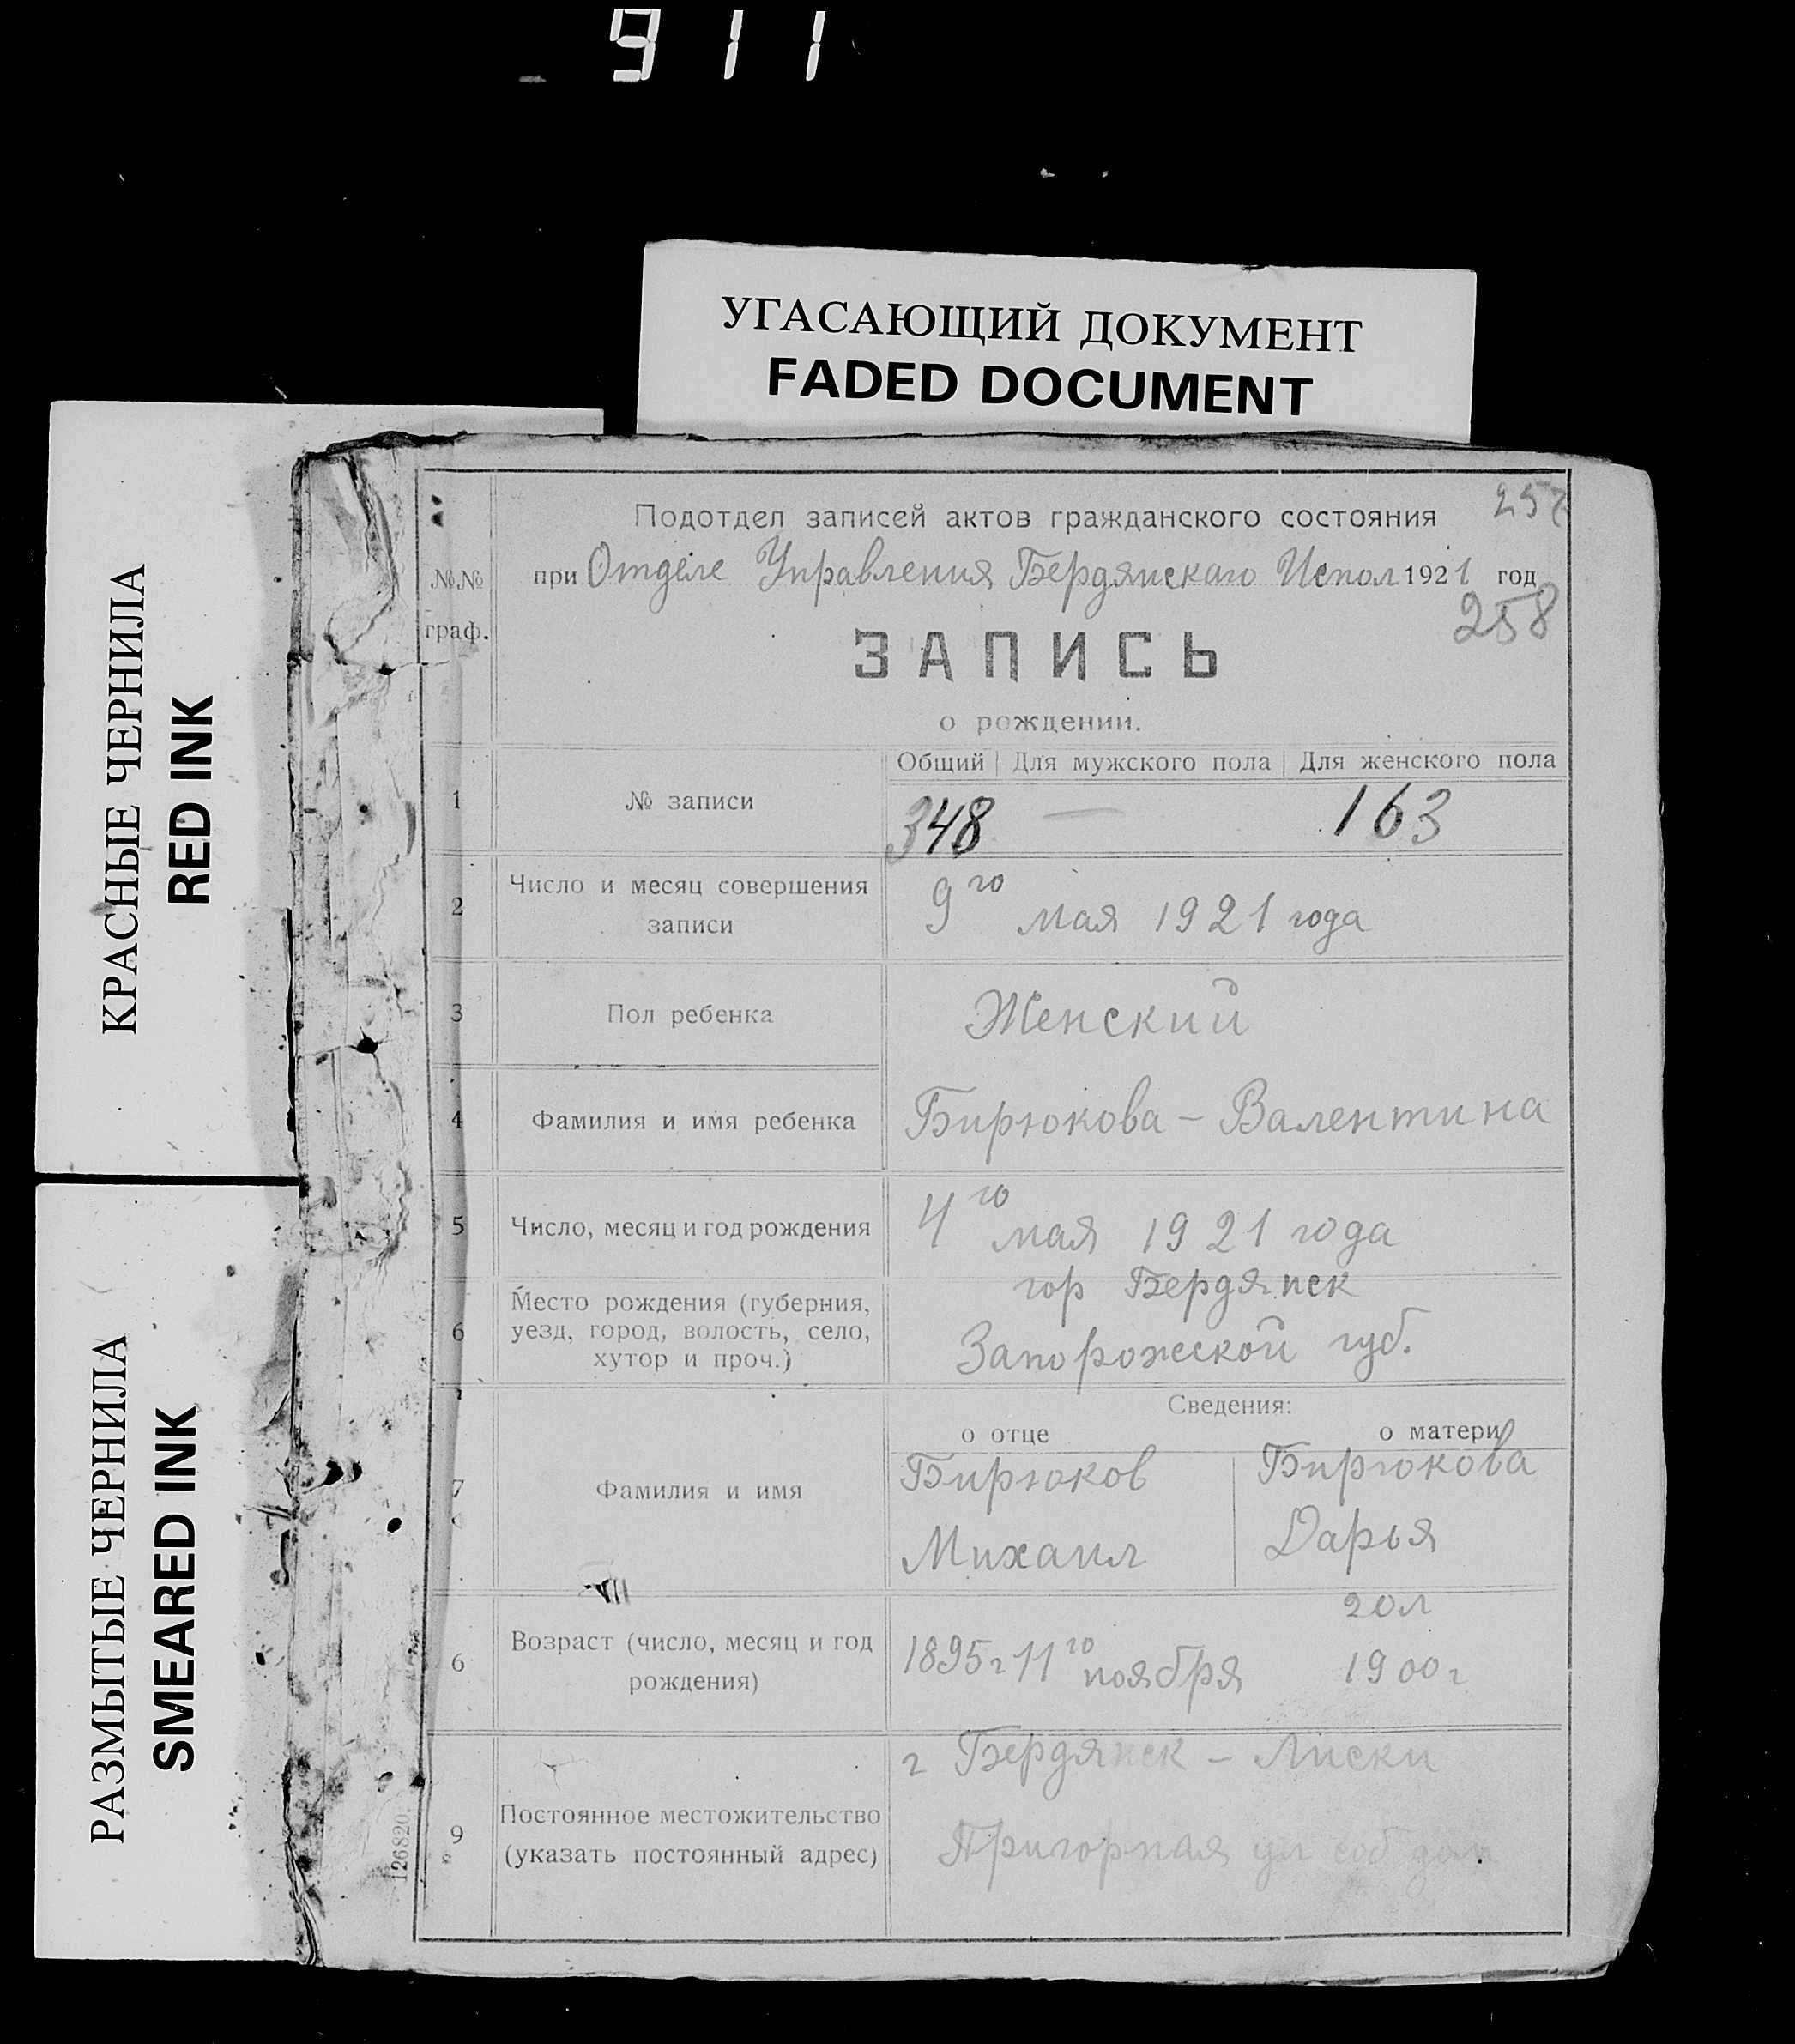 911
УГАСАЮЩИЙ ДОКУМЕНТ
FADED DOCUMENT
КРАСНЫЕ ЧЕРНИЛА
RED INK
РАЗМЫТЫЕ ЧЕРНИЛА
SMEARED INK
257
Подотдел записей актов гражданского состояния
№№ граф.
при Отделе Управления Бердянскаго Испол 1921 год
258
ЗАПИСЬ
о рождении.
Общий Для мужского пола Для женского пола
1 № записи 348 — 163
2 Число и месяц совершения записи 9го мая 1921 года
3 Пол ребенка Женский
4 Фамилия и имя ребенка Бирюкова - Валентина
5 Число, месяц и год рождения 4го мая 1921 года
гор Бердянск
6 Место рождения (губерния, уезд, город, волость, село, хутор и проч.) Запорожской губ.
Сведения:
о отце о матери
Бирюков Бирюкова
7 Фамилия и имя
Михаил Дарья
20л
6 Возраст (число, месяц и год рождения) 1895г 11го ноября 1900г
г Бердянск - Лиски
9 Постоянное местожительство (указать постоянный адрес) Пригорная ул соб дом
126820